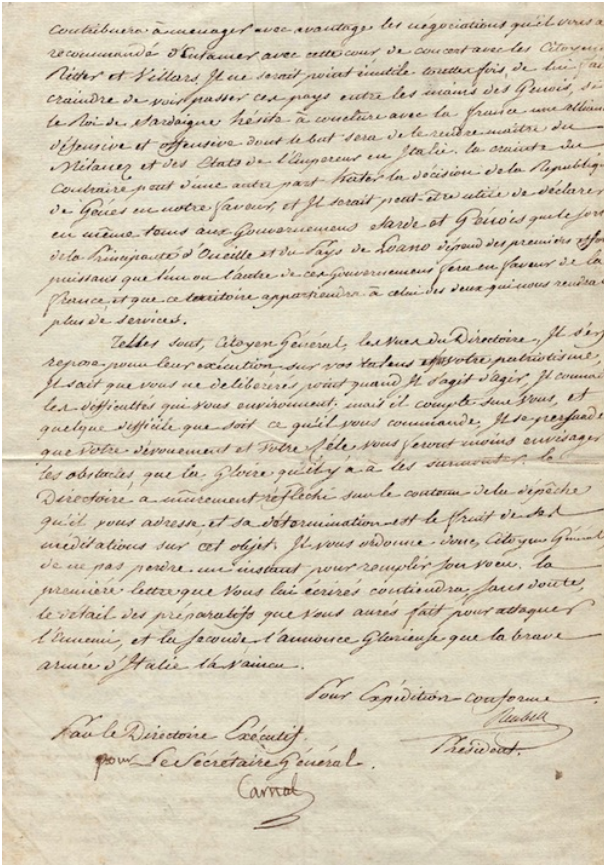 contribuera à ménager avec avantage les négociations qu'il vous a
recommandé d'entamer avec cette cour de concert avec les Citoyens
Ritter et Villars. Il ne serait point inutile toutes fois, de lui fai
craindre de voir passer ces pays entre les mains des Genois, si
le Roi de Sardaigne hésite à conclure avec la france une allian
défensive et offensive dont le but sera de le rendre maitre du
Milanez et des Etats de l'Empereur en Italie. la crainte du
Contraire peut d'une autre part hâter la décision de la Republiq
de Gênes en notre faveur, et Il serait peut-être utile de déclarer
en même tems aux Gouvernemens Sarde et Genois que le sort
de la Principauté d'Oneille et du Pays de Loano dépend des premiers effor
puissans que l'un ou l'autre de ces Gouvernemens fera en faveur de la
france et que ce territoire appartiendra à celui des deux qui nous rendra
plus de services.
Telles sont, Citoyen Général, les vues du Directoire, Il s'en
repose pour leur exécution sur vos talens et votre patriotisme,
Il sait que vous ne délibérés point quand Il s'agit d'agir, Il connai
les difficultés qui vous environnent, mais il compte sur vous, et
quelque difficile que soit ce qu'il vous commande, Il se persuade
que votre dévouement et votre zèle vous feront moins envisager
les obstacles que la Gloire qu'il y a à les surmonter. le
Directoire a mûrement réfléchi sur le contenu de la dépêche
qu'il vous adresse et sa détermination est le fruit de ses
méditations sur cet objet. Il vous ordonne donc, Citoyen Général,
de ne pas perdre un instant pour remplir son voeu. la
première lettre que vous lui écrirés contiendra, sans doute,
le détail des préparatifs que vous aurés fait pour attaquer
l'Ennemi, et la seconde l'annonce Glorieuse que la brave
armée d'Italie l'a vaincu.
Pour Expédition conforme
Reubell
Président.
Par le Directoire Exécutif.
pour Le Secrétaire Général.
Carnot